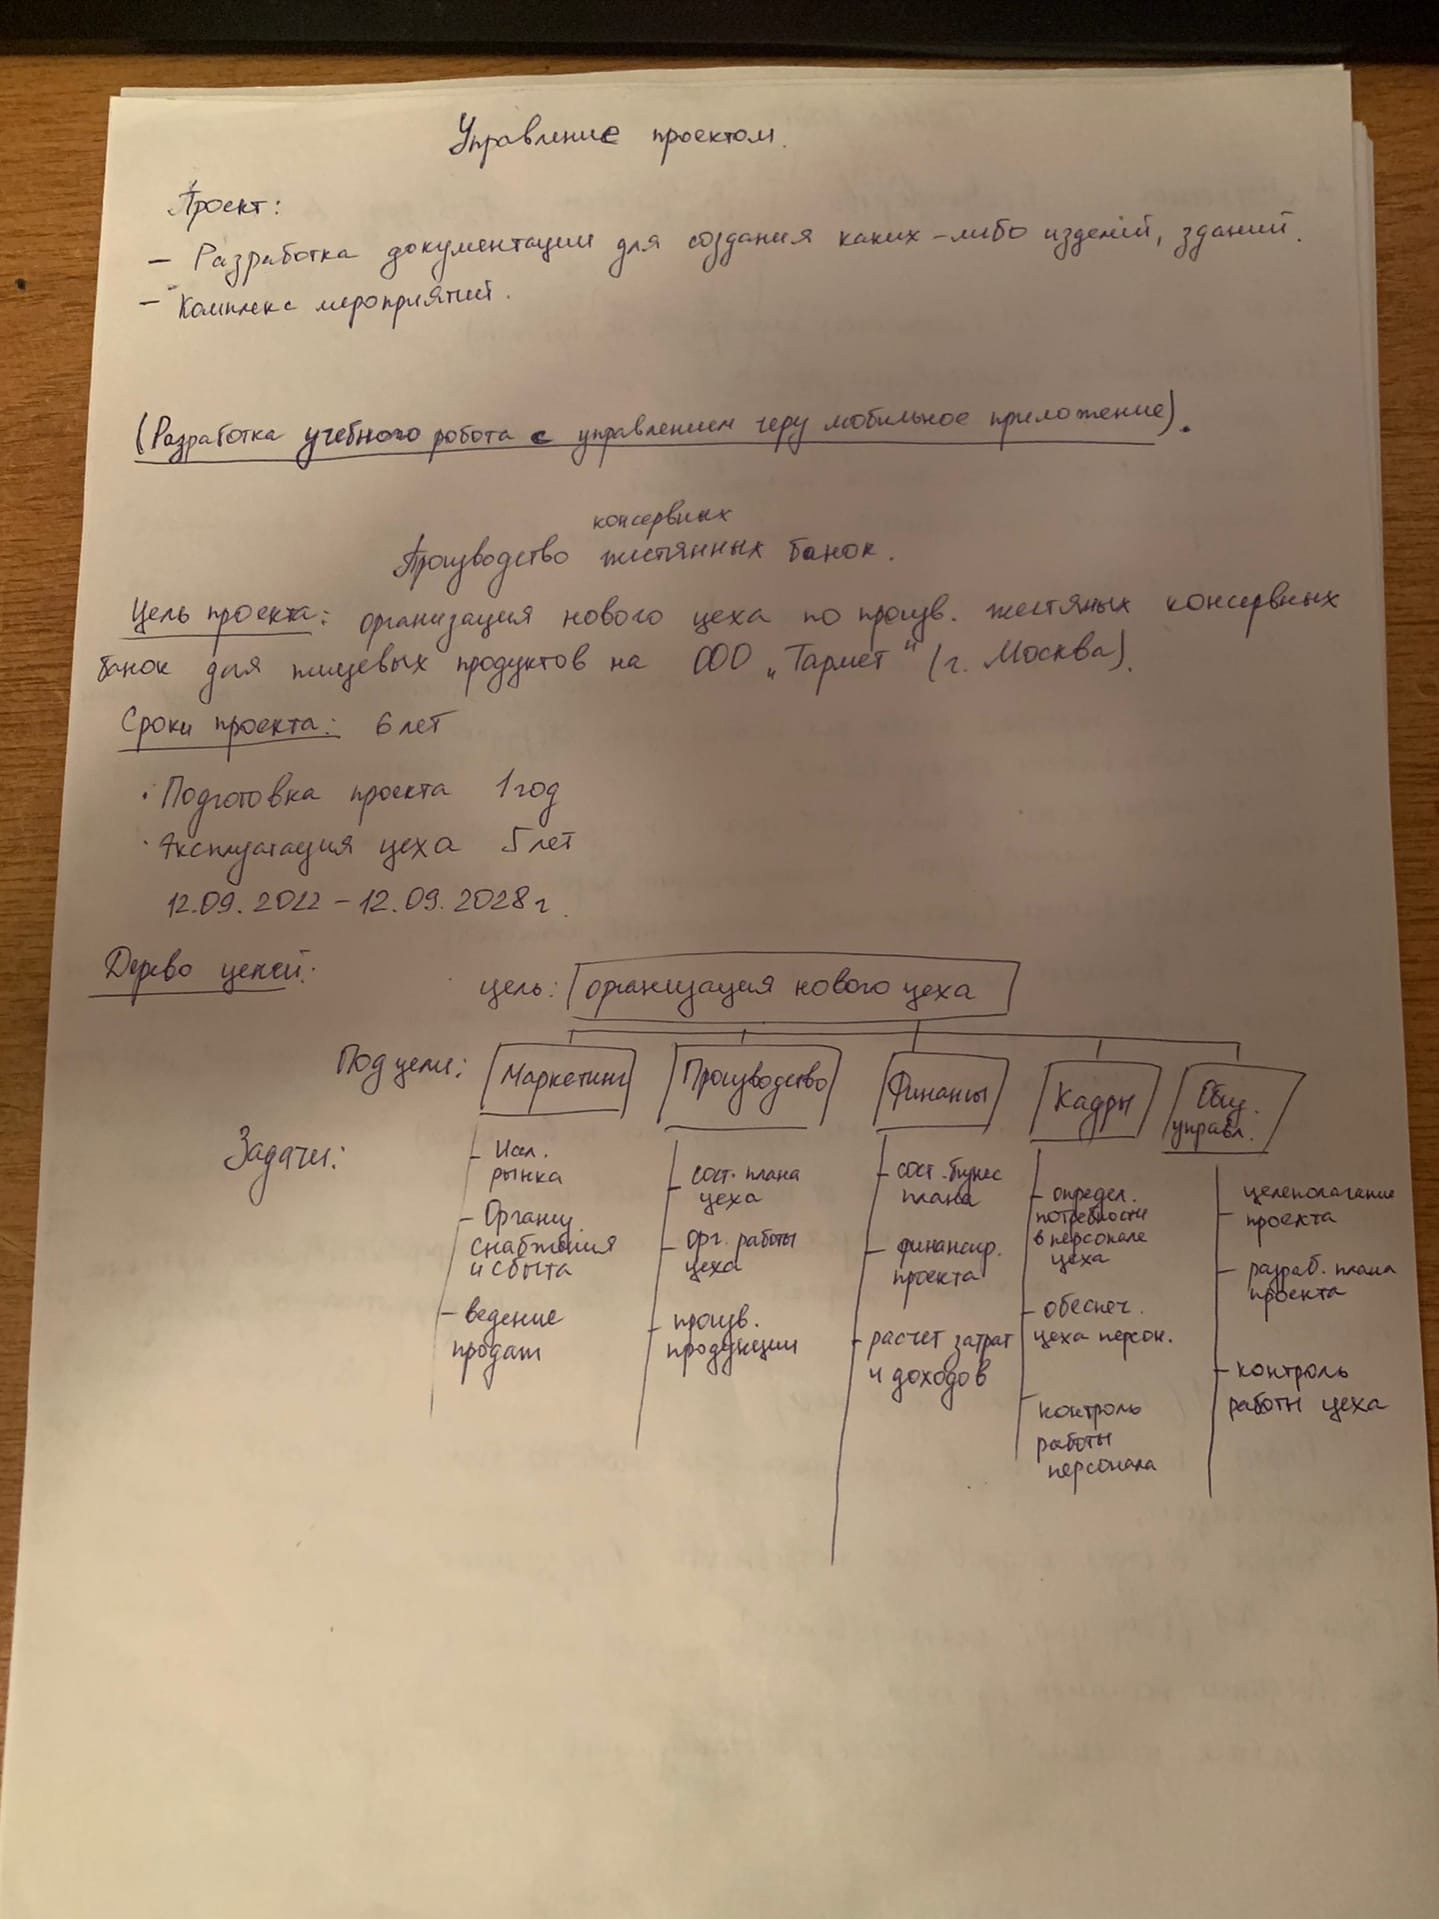 Управление проектом.
Проект:
– Разработка документации для создания каких-либо изделий, зданий.
– Комплекс мероприятий.
(Разработка учебного робота с управлением черу мобильное приложение).
консервных
Производство жестянных банок.
Цель проекта: организация нового цеха по произв. жестяных консервных
банок для пищевых продуктов на ООО „Тармет" (г. Москва).
Сроки проекта: 6 лет
· Подготовка проекта 1 год
· Эксплуатация цеха 5 лет
12.09.2022 – 12.09.2028 г.
Дерево целей:
цель: организация нового цеха
Подцели: Маркетинг Производство Финансы Кадры Общ. управл.
Задачи:
– Иссл.
рынка
– Организ.
снабжения
и сбыта
– ведение
продаж
– сост. плана
цеха
– орг. работы
цеха
– произв.
продукции
– сост. бизнес
плана
– финансир.
проекта
– расчет затрат
и доходов
– определ.
потребности
в персонале
цеха
– обеспеч.
цеха персон.
контроль
работы
персонала
целеполагание
– проекта
– разраб. плана
проекта
– контроль
работы цеха